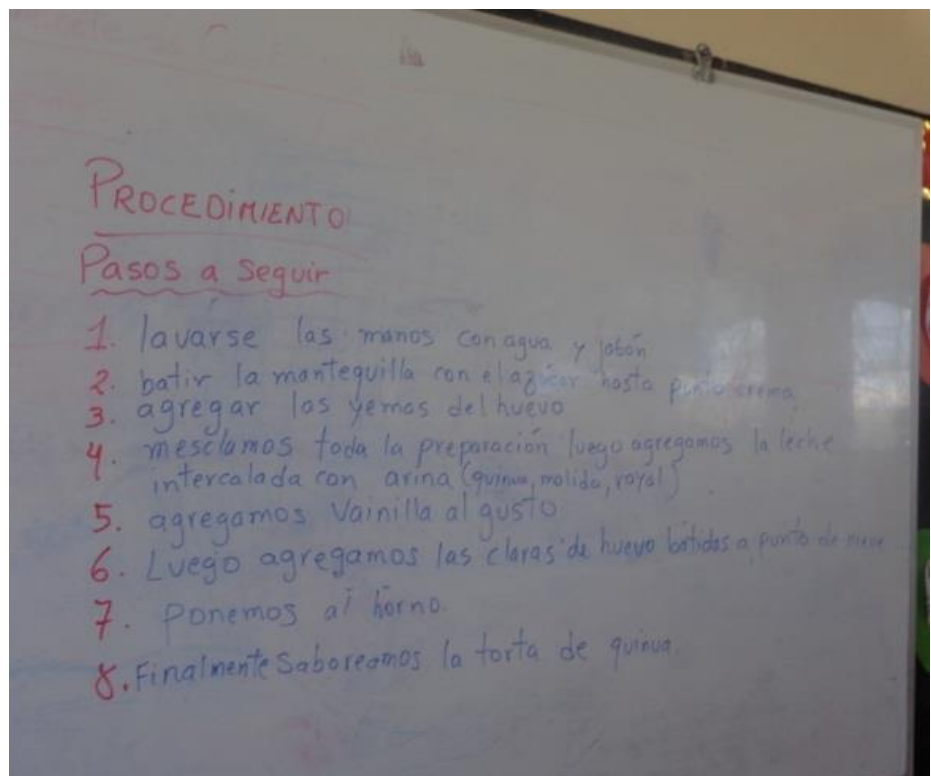 PROCEDIMIENTO
Pasos a seguir
1. lavarse las manos con agua y jabón
2. batir la mantequilla con el azúcar hasta punto crema
3. agregar las yemas del huevo
4. mesclamos toda la preparación luego agregamos la leche
intercalada con arina (quinua, molida, royal)
5. agregamos Vainilla al gusto
6. Luego agregamos las claras de huevo batidas a punto de nieve
7. Ponemos al horno.
8. Finalmente Saboreamos la torta de quinua.